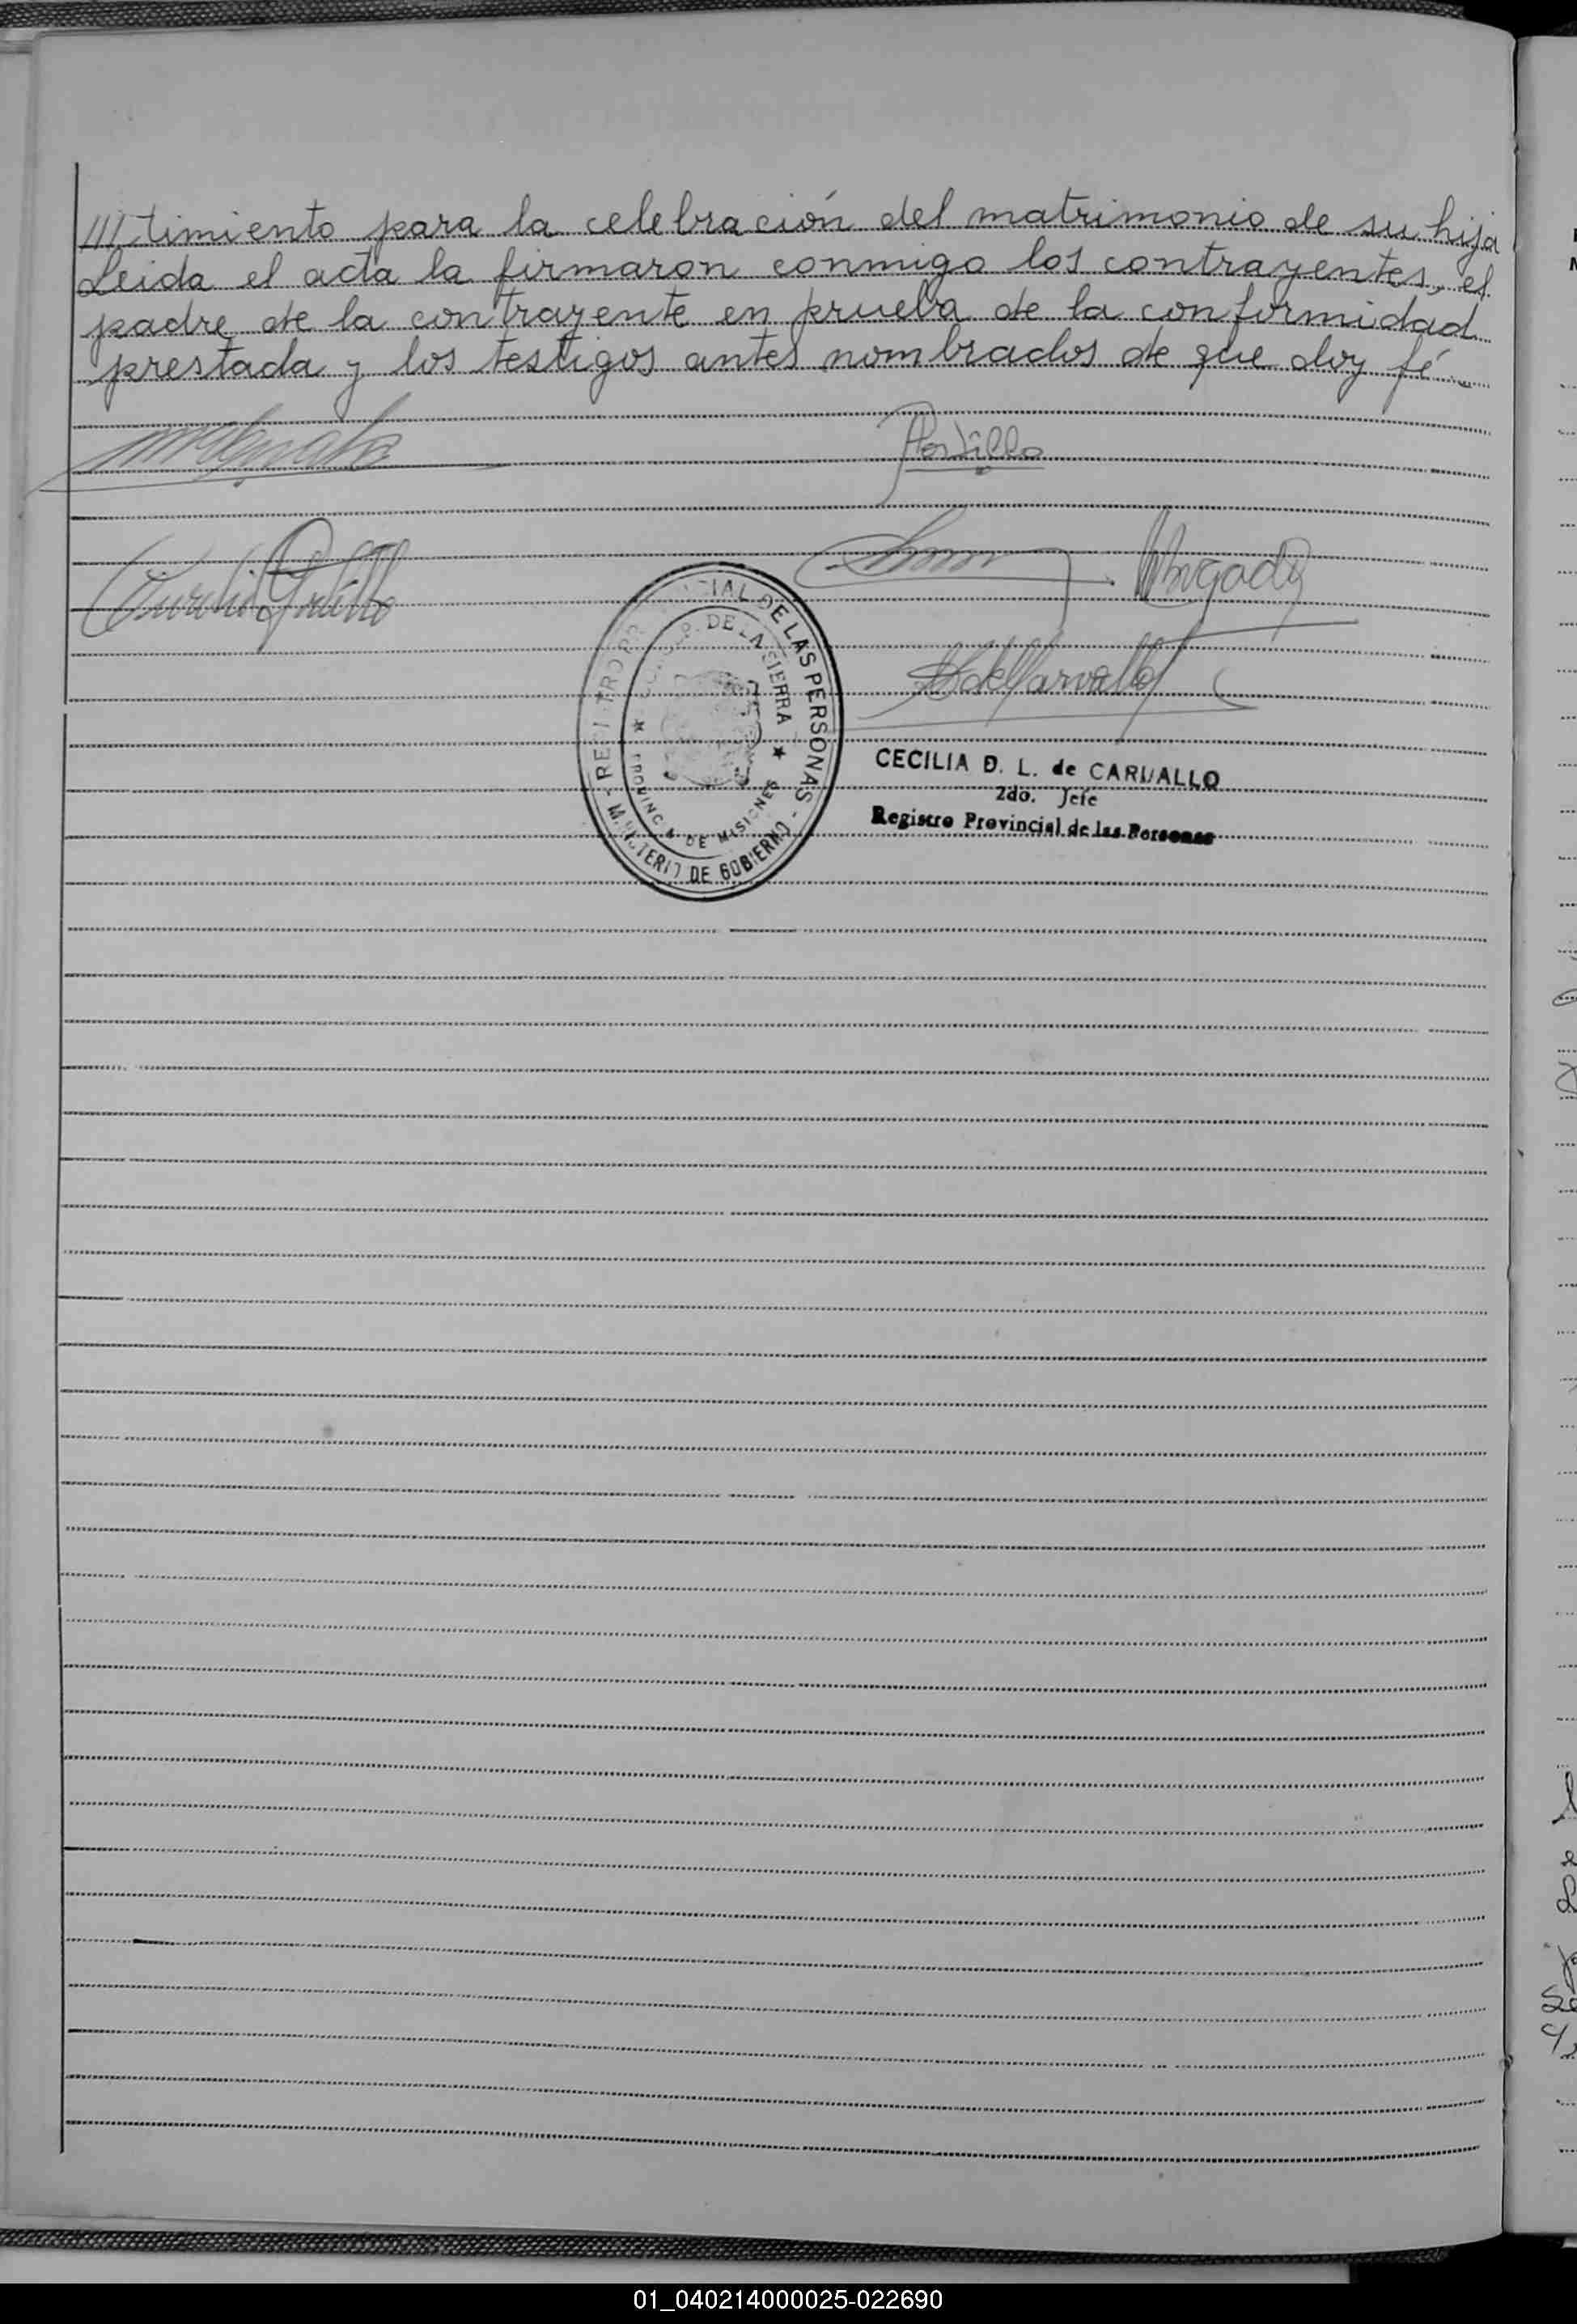 ///timiento para la celebración del matrimonio de su hija
Leida el acta la firmaron conmigo los contrayentes, el
padre de la contrayente en prueba de la conformidad
prestada y los testigos antes nombrados de que doy fé.
Portillo
Aurelio Portillo
REGISTRO PROVINCIAL DE LAS PERSONAS - MINISTERIO DE GOBIERNO -
DE LA SIERRA ★ PROVINCIA DE MISIONES ★
CdeCarvallo
CECILIA D. L. de CARVALLO
2do. Jefe
Registro Provincial de las Personas
01_040214000025-022690